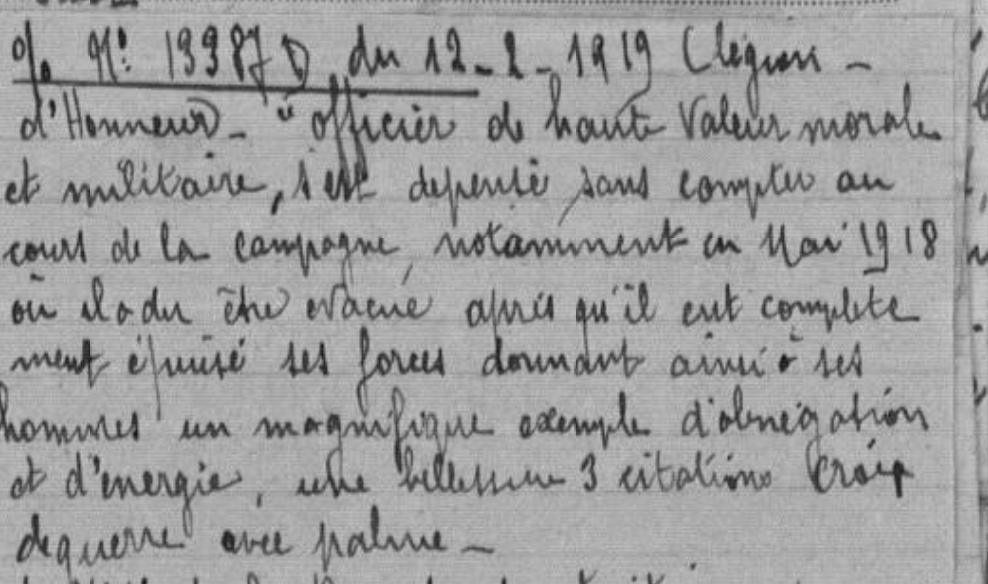 O/. N°: 13387 D du 12-2-1919 (légion -
d'Honneur - "officier de haute valeur morale
et militaire, s'est depensé sans compter au
cours de la campagne, notamment en Mai 1918
où il a du être evacué après qu'il eut complete
ment épuisé ses forces donnant ainsi à ses
hommes un magnifique exemple d'abnégation
et d'énergie, une blessure 3 citations Croix
de guerre avec palme -